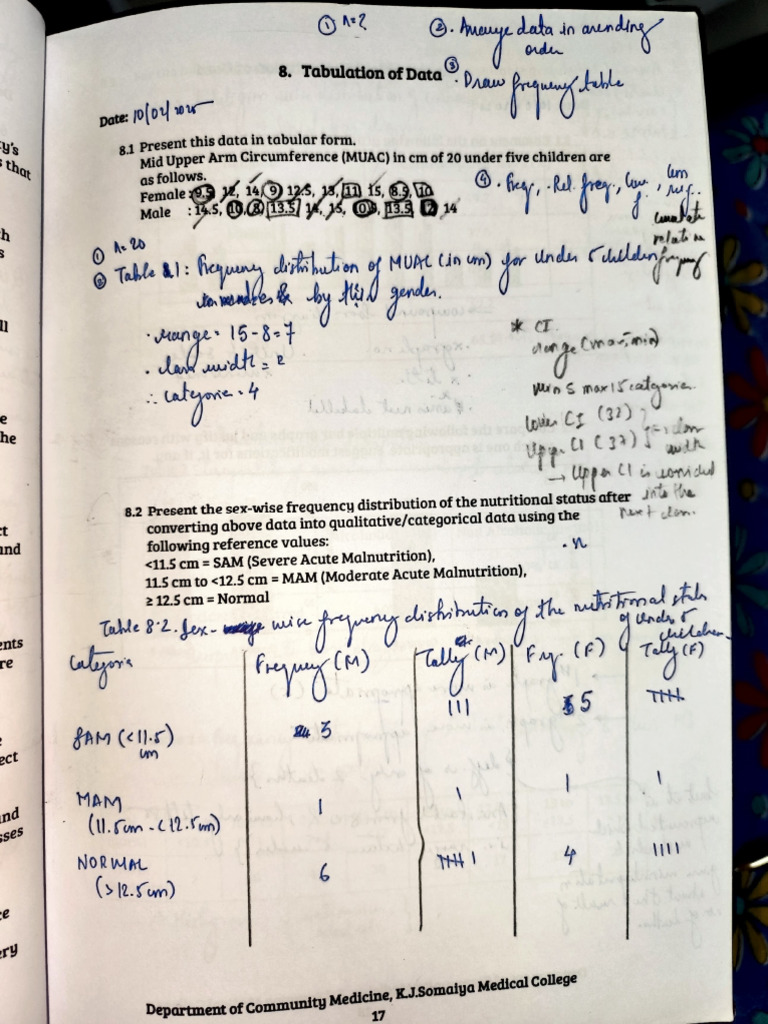 ① n=?
②. Arrange data in ascending
order
8. Tabulation of Data
③. Draw frequency table
Date: 10/02/2025
8.1 Present this data in tabular form.
Mid Upper Arm Circumference (MUAC) in cm of 20 under five children are
as follows.
Female : 9.5, 12, 14, 9, 12.5, 13, 11, 15, 8.9, 10
Male : 14.5, 10, 8, 13.5, 14, 15, 13.5, 14
④. Freq, Rel. freq,
relative
① n=20
② Table 1: Frequency distribution of MUAC (in cm) for under 5 children
by their gender.
· range = 15-8=7
· class width = 2
∴ categorie = 4
* CI
range (max, min)
min 5 max 15 categories
lower CI (32)
Upper CI (37) class
width
→ Upper CI is
into the
next class.
8.2 Present the sex-wise frequency distribution of the nutritional status after
converting above data into qualitative/categorical data using the
following reference values:
· n
<11.5 cm = SAM (Severe Acute Malnutrition),
11.5 cm to <12.5 cm = MAM (Moderate Acute Malnutrition),
≥ 12.5 cm = Normal
Table 8.2. Sex- wise frequency distribution of the nutritional status
of under 5
children
Categorie Frequency (M) Tally (M) Frq. (F) Tally (F)
SAM (<11.5) 3 ||| 5 ||||
cm
MAM 1 | 1 |
(11.5cm - <12.5cm)
NORMAL 6 |||| | 4 ||||
(>12.5cm)
Department of Community Medicine, K.J.Somaiya Medical College
17